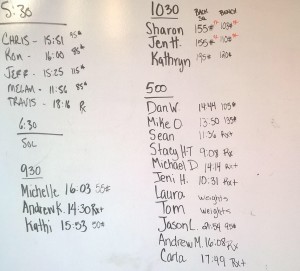 5:30
CHRIS - 15:51 95#
RON - 16:00 85#
JEFF - 15:25 115#
MEGAN - 11:56 85#
TRAVIS - 18:16 Rx
6:30
SOL
930
Michelle 16:03 55#
Andrew K. 14:30 Rx+
Kathi 15:53 50#
1030 BACK SQ BENCH
Sharon 155# 103#
Jen H. 155# 110#
Kathryn 195# 120#
500
Dan W. 14:44 105#
Mike O. 13:50 135#
Sean 11:36 Rx+
Stacy H-T 9:08 Rx
Michael D. 14:14 Rx+
Jeni H. 10:31 Rx+
Laura weights
Tom weights
Jason L. 21:54 95#
Andrew M. 16:08 Rx
Carla 17:49 Rx+